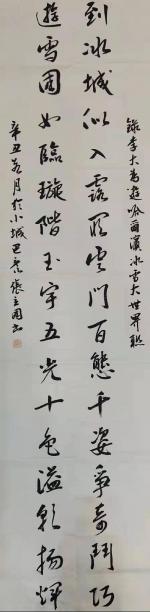 錄李大為遊哈爾濱冰雪大世界聯
到冰城似入露羅雲門百態千姿爭奇鬥巧
遊雪國如臨璇階玉宇五光十色溢彩揚輝
辛丑冬月於小城巴彥張立國書